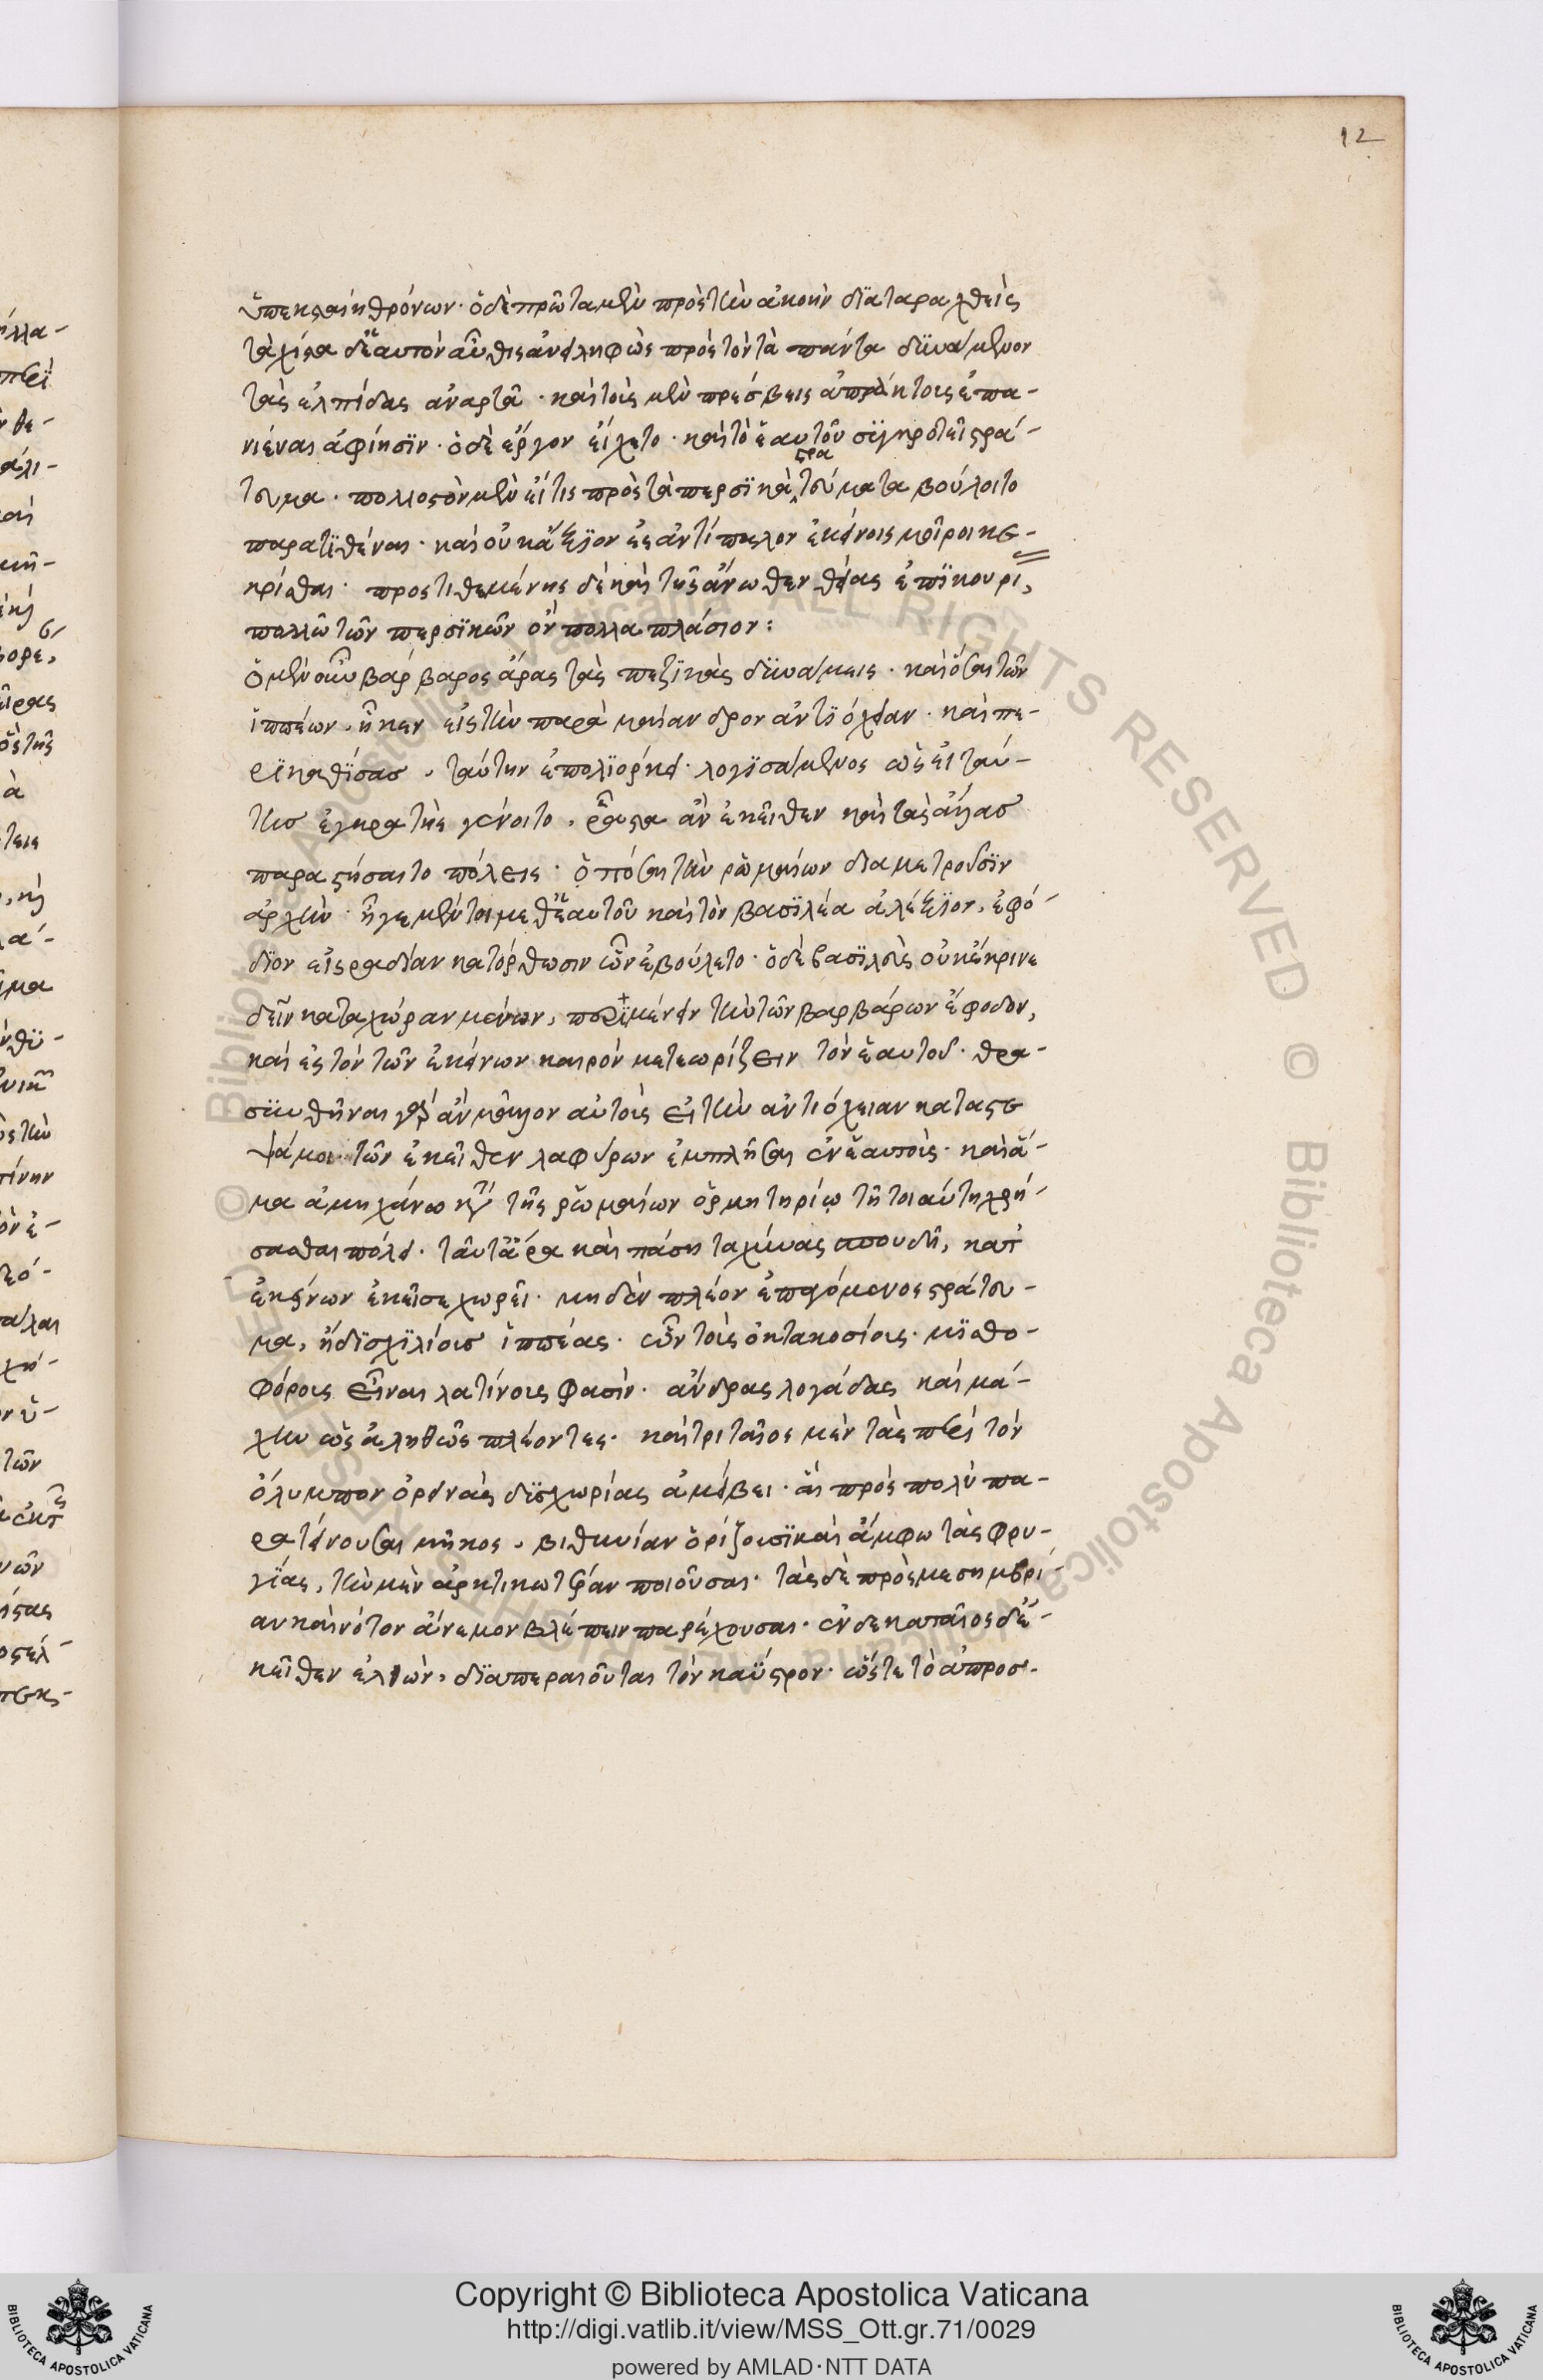 12
ὑπεκσταίη θρόνων· ὁ δὲ πρῶτα μὲν πρὸς τὴν ἀκοὴν διαταραχθεὶς
τάχιστα δ' ἑαυτὸν αὖθις ἀνειληφὼς πρὸς τὸν τὰ πάντα δυνάμενον
τὰς ἐλπίδας ἀναρτᾷ· καὶ τοὺς μὲν πρέσβεις ἀπράκτους ἐπα-
νιέναι ἀφίησιν· ὁ δὲ ἔργου εἴχετο· καὶ τὸ ἑαυτοῦ συγκροτεῖ στρά-
τευμα· πολλοστὸν μὲν εἴ τις πρὸς τὰ περσικὰ στρατεύματα βούλοιτο
παρατιθέναι· καὶ οὐκ ἄξιον ἐς ἀντίπαλον ἐκείνοις μοῖραν κε-
κρίσθαι· προστιθεμένης δὲ καὶ τῆς ἄνωθεν θείας ἐπικουρι,
πολλῷ τῶν περσικῶν ὂν πολλαπλάσιον:
ὁ μὲν οὖν βάρβαρος ἄρας τὰς πεζικὰς δυνάμεις· καὶ ὅσαι τῶν
ἱππέων, ἧκεν εἰς τὴν παρὰ μαίανδρον ἀντιόχειαν· καὶ πε-
ρικαθίσας, ταύτην ἐπολιόρκει· λογισάμενος ὡς εἰ ταύ-
της ἐγκρατὴς γένοιτο, ῥᾷστα ἂν ἐκεῖθεν καὶ τὰς ἄλλας
παραστήσαιτο πόλεις· ὁπόσαι τὴν ῥωμαίων διαμετροῦσιν
ἀρχήν· ἦγε μέντοι μεθ' ἑαυτοῦ καὶ τὸν βασιλέα ἀλέξιον, ἐφό-
διον εἰς ῥαδίαν κατόρθωσιν ὧν ἐβούλετο· ὁ δὲ βασιλεὺς οὐκ ἔκρινε
δεῖν κατὰ χώραν μένων, περιμένειν τὴν τῶν βαρβάρων ἔφοδον,
καὶ ἐς τὸν τῶν ἐκείνων καιρὸν μετεωρίζειν τὸν ἑαυτοῦ· θρα-
συνθῆναι γὰρ ἂν μᾶλλον αὐτοὺς εἰ τὴν ἀντιόχειαν καταστρε
ψάμενοι τῶν ἐκεῖθεν λαφύρων ἐμπλῆσαι ἐν ἑαυτοῖς· καὶ ἅ-
μα ἀμηχάνῳ κατὰ τῆς ῥωμαίων ὁρμητηρίῳ τῇ τοιαύτῃ χρή-
σασθαι πόλει· ταῦτ' ἄρα καὶ πάσῃ ταχύνας σπουδῇ, κατ'
ἐκείνων ἐκεῖσε χωρεῖ· μηδὲν πλέον ἐπαγόμενος στράτευ-
μα, ἢ δισχιλίους ἱππέας· ὧν τοὺς ὀκτακοσίους· μισθο-
φόρους εἶναι λατίνους φασὶν· ἄνδρας λογάδας καὶ μά-
χην ὡς ἀληθῶς πλέοντες· καὶ τριταῖος μὲν τὰς περὶ τὸν
ὄλυμπον ὀρεινὰς δυσχωρίας ἀμείβει· αἳ πρὸς πολὺ πα-
ρατείνουσαι μῆκος, βιθυνίαν ὁρίζουσι καὶ ἄμφω τὰς φρυ-
γίας, τὴν μὲν ἀρκτικωτέραν ποιοῦσαι· τὰς δὲ πρὸς μεσημβρί-
αν καὶ νότον ἄνεμον βλέπειν παρέχουσαι· ἑνδεκαταῖος δ' ἐ-
κεῖθεν ἐλθών, διαπεραιοῦται τὸν καΰστρον· ὥστε τὸ ἀπροσ-
Copyright © Biblioteca Apostolica Vaticana
http://digi.vatlib.it/view/MSS_Ott.gr.71/0029
powered by AMLAD·NTT DATA
BIBLIOTECA APOSTOLICA VATICANA
BIBLIOTECA APOSTOLICA VATICANA